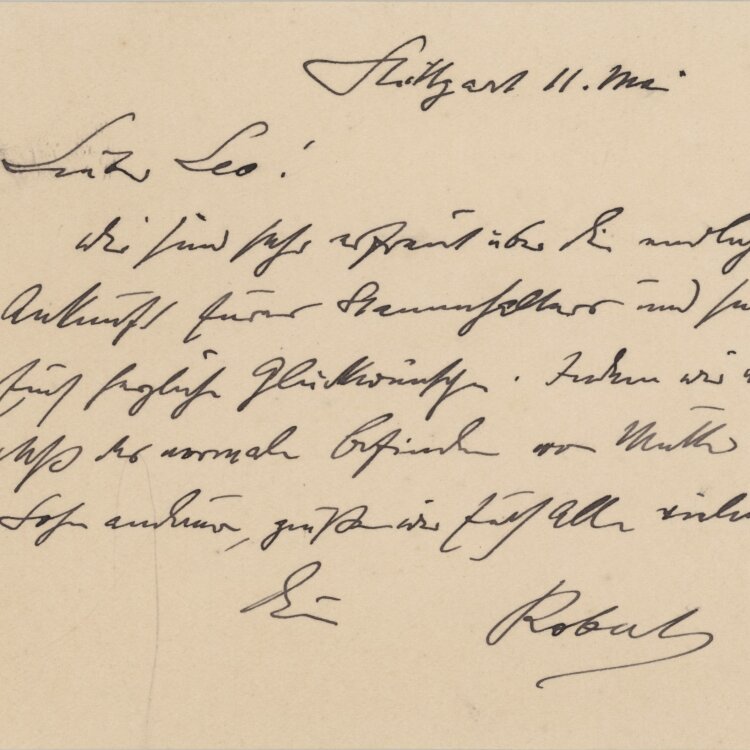 Stuttgart 11. Mai
Lieber Leo!
Wir sind sehr erfreut über die endlich
Ankunft Eures Stammhalters und sen
Euch herzliche Glückwünsche. Indem wir
daß das normale Befinden von Mutter
Sohn andauere, grüßen wir Euch Alle vielm
Dein Robert